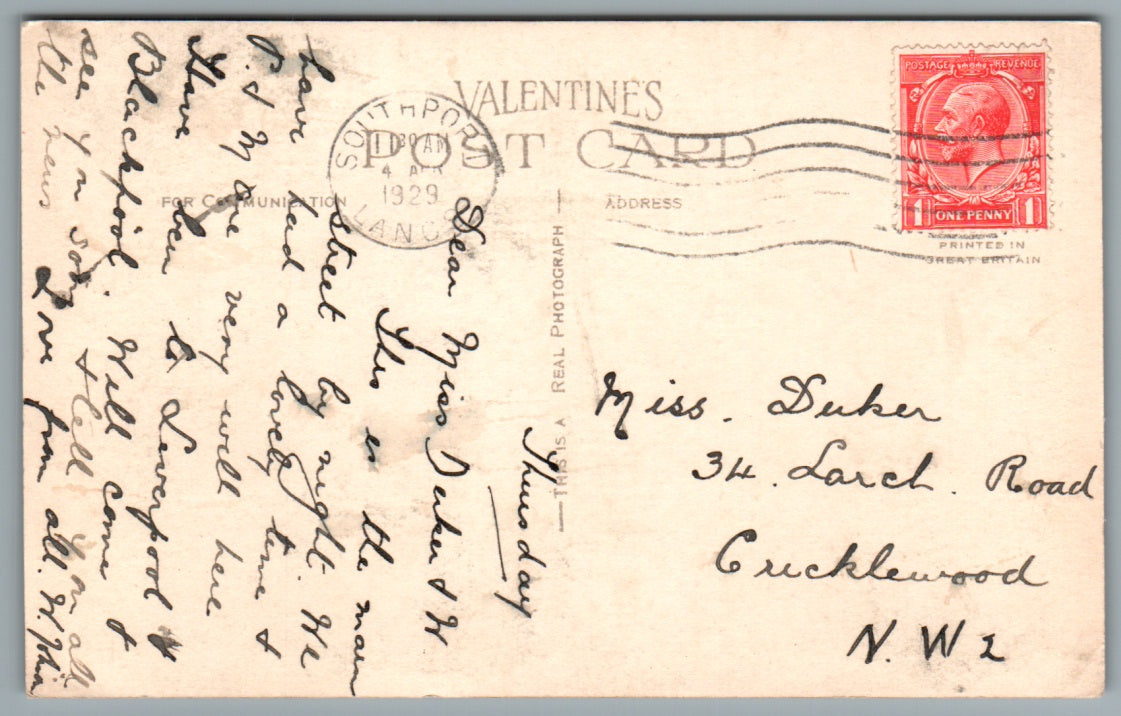 VALENTINE'S
POST CARD
FOR COMMUNICATION
ADDRESS
THIS IS A REAL PHOTOGRAPH
PRINTED IN
GREAT BRITAIN
POSTAGE REVENUE
1 ONE PENNY 1
SOUTHPORT
11 30 AM
4 APR
1929
LANCS
Thursday
Dear Miss Duker & W
This is the main
street by night. We
have had a lovely time &
are very well here
Have been to Liverpool &
Blackpool. Will come &
see you soon & tell you all
the news Love from all. W.
Miss. Duker
34. Larch. Road
Cricklewood
N. W 2